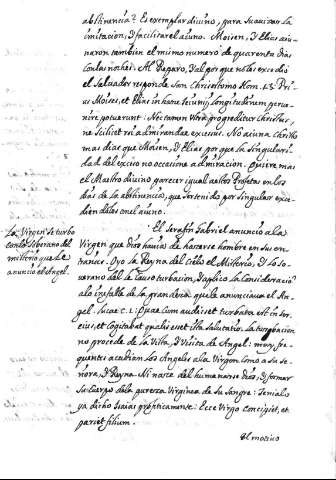 abstinencia? Es exemplar divino, para suavizar la
imitacion, y facilitar el aiuno. Moisen, y Elias aiu-
naron tambien el mismo numero de quarenta dias
con las noches. Mi Reparo, y el por que no les excedio
el Salvador responde San Chrisostomo Hom. 13. Pri-
us Moises, et Elias in hanc ieiunij longitudinem perue-
nire potuerunt: Nec tamen Vltra progreditur Christus,
ne scilicet rei admirandæ excessus. No aiuna Christo
mas dias que Moisen, y Elias por que la singulari-
dad del excesso no occasione admiracion. Quiere mas
el Maestro divino parecer igual a estos Profetas en los
dias de la abstinencia, que ser tenido por singular exce-
diendoles en el aiuno.
El Serafin Gabriel anunció a la
Virgen que Dios havia de hazerse hombre en su en-
traña. Oyo la Reyna del Cielo el Misterio, y lo so-
verano del le causo turbacion, y aplico la consideració
a lo inefable de la grandeza que le anunciava el An-
gel. Lucæ c. 1. Quæ cum audisset turbata est in ser-
mone eius, et cogitabat qualis esset ista salutatio. La turbacion
no procede de la Vista, y Visita de Angel: muy fre-
quentes acudian los Angeles a la Virgen como a su se-
ñora, y Reyna. Mi nasce del humanarse Dios, y formar
su Cuerpo de la pureza Virginea de su sangre: tenialo
ya dicho Isaias propheticamente: Ecce Virgo Concipiet, et
pariet filium.
El motivo
La Virgen se turbo
con lo soberano del
misterio que le
anuncio el Angel.